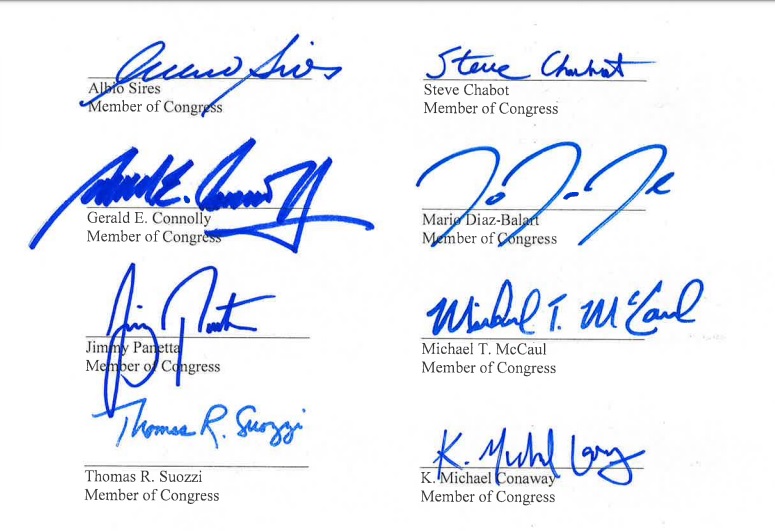 Albio Sires
Member of Congress
Steve Chabot
Steve Chabot
Member of Congress
Gerald E. Connolly
Member of Congress
Mario Diaz-Balart
Member of Congress
Jimmy Panetta
Member of Congress
Michael T. McCaul
Michael T. McCaul
Member of Congress
Thomas R. Suozzi
Thomas R. Suozzi
Member of Congress
K. Michael Conaway
Member of Congress